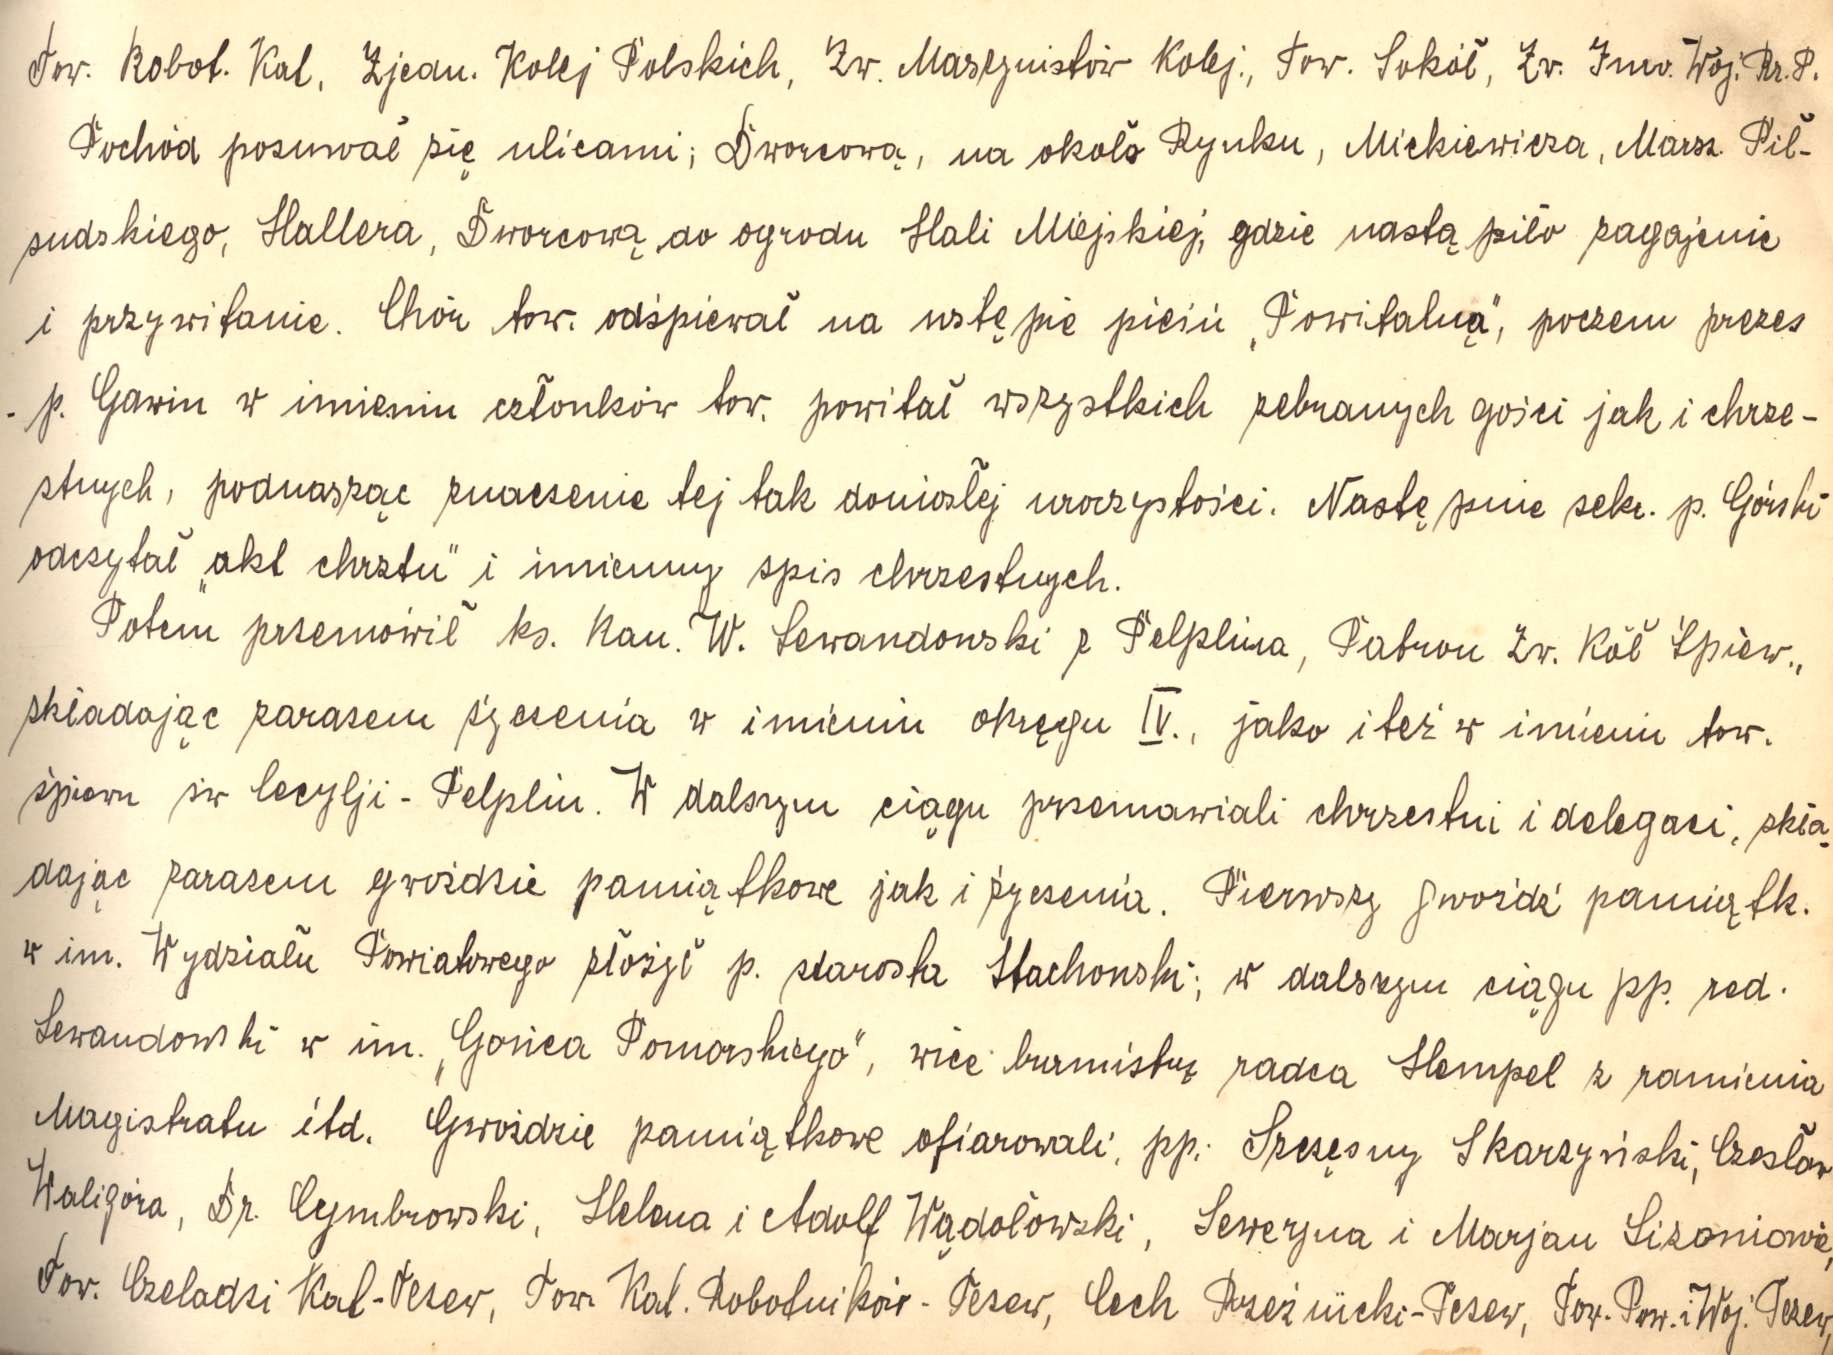 Tow. Robot. Kat, Zjedn. Kolej Polskich, Zw. Maszynistów Kolej., Tow. Sokół, Zw. Inw. Woj. Rz. P.
Pochód posuwał się ulicami; Dworcową, na około Rynku, Mickiewicza, Marsz. Pił-
sudskiego, Hallera, Dworcową do ogrodu Hali Miejskiej, gdzie nastąpiło zagajenie
i przywitanie. Chór tow. odśpiewał na wstępie pieśń „Powitalną", poczem prezes
p. Gawin w imieniu członków tow. powitał wszystkich zebranych gości jak i chrze-
stnych, podnasząc znaczenie tej tak doniosłej uroczystości. Następnie sekr. p. Górski
odczytał „akt chrztu" i imienny spis chrzestnych.
Potem przemówił ks. Kan. W. Lewandowski z Pelplina, Patron Zw. Kół Śpiew.,
składając zarazem życzenia w imieniu okręgu IV., jako i też w imieniu tow.
śpiewu św Cecylji - Pelplin. W dalszym ciągu przemawiali chrzestni i delegaci, skła-
dając zarazem gwoździe pamiątkowe jak i życzenia. Pierwszy gwóźdź pamiątk.
w im. Wydziału Powiatowego złożył p. starosta Stachowski; w dalszym ciągu pp. red.
Lewandowski w im. „Gońca Pomorskiego", wice burmistrz radca Hempel z ramienia
Magistratu itd. Gwoździe pamiątkowe ofiarowali, pp. Szczęsny Skarzyński, Czesław
Waligóra, Dr. Cymbrowski, Helena i Adolf Wądołowski, Seweryna i Marjan Lizoniowie,
Tow. Czeladzi Kat-Tczew, Tow. Kat. Robotników - Tczew, Cech Rzeźnicki-Tczew, Tow. Pow. i Woj. Tczew,